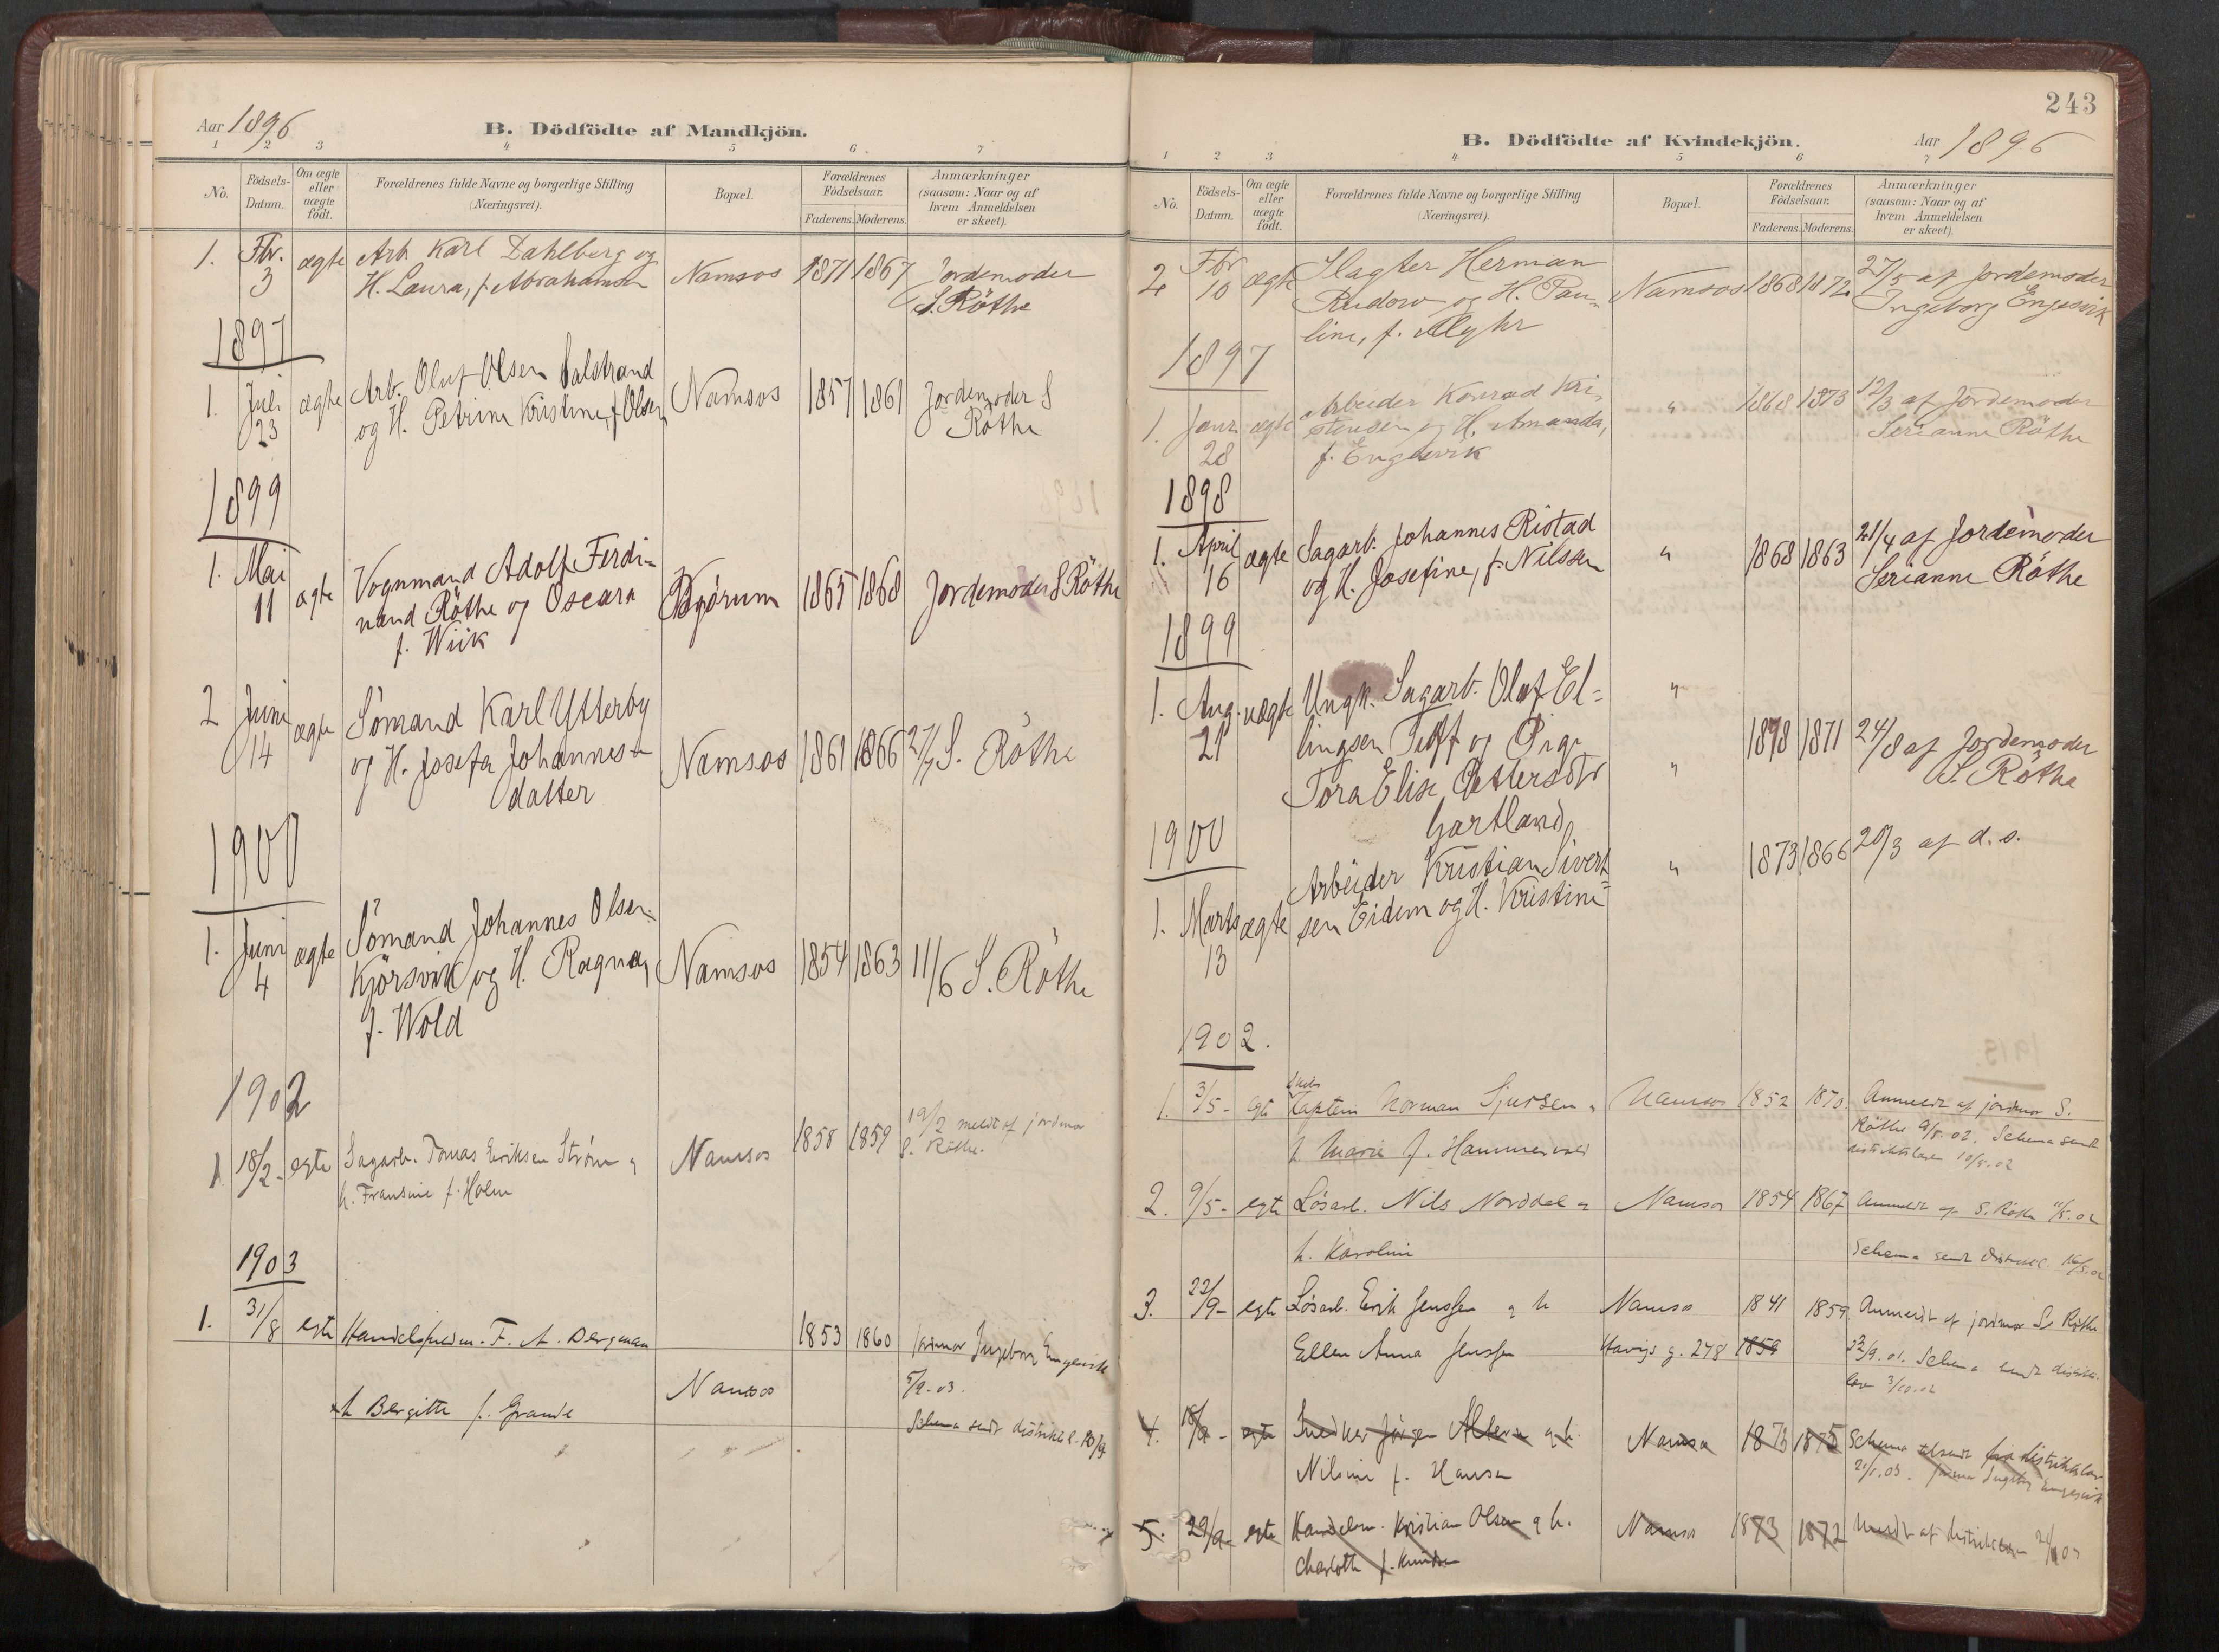 Aar 1896
B. Dödfödte af Mandkjön.
1 2 3 4 5 6 7
No.
Födsels-
Datum.
Om ægte
eller
uægte
født.
Forældrenes fulde Navne og borgerlige Stilling
(Næringsvei).
Bopæl.
Forældrenes
Födselsaar.
Faderens. Moderens.
Anmærkninger
(saasom: Naar og af
hvem Anmeldelsen
er skeet).
1. Fbr. ægte Arb Karl Dahlberg og Namsos 1871 1867 Jordemoder
3 H. Laura, f. Abrahamsen S. Röthe
1897
1. Juli ægte Arb. Oluf Olsen Salstrand Namsos 1857 1861 Jordemoder S
23 og H. Petrine Kristine, f Olsen Röthe
1899
1. Mai ægte Vognmand Adolf Ferdi-
11 nand Röthe og Oscara Bjørum 1865 1868 Jordemoder S Röthe
f. Wiik
2 Juni ægte Sömand Karl Ytterby
14 og H. Josefa Johannes- Namsos 1861 1866 27/7 S. Röthe
datter
1900
1. Juni ægte Sömand Johannes Olsen
4 Kjörsvik og H. Ragna, Namsos 1854 1863 11/6 S. Röthe
f. Wold
1902
1 18/2- egte Sagarb. Tomas Eriksen Strøm & Namsos 1858 1859 19/2 meldt af jordmor
h. Fransine f. Holm S. Röthe.
1903
1. 31/8 egte Handelsfuldm. F. A. Bergman 1853 1860 jordmor Ingeborg Engesvik
h Bergitte f. Grande Namsos 5/9-03.
Schema sendt distriktsl. 10/9
243
B. Dödfödte af Kvindekjön.
Aar 1896
1 2 3 4 5 6 7
No.
Födsels-
Datum.
Om ægte
eller
uægte
födt.
Forældrenes fulde Navne og borgerlige Stilling
(Næringsvei).
Bopæl.
Forældrenes
Födselsaar.
Faderens. Moderens.
Anmærkninger
(saasom: Naar og af
hvem Anmeldelsen
er skeet).
2 Fbr ægte Slagter Herman 27/5 af Jordemoder
10 Rudow og H. Pau- Namsos 1868 1872 Ingeborg Engesvik
line, f. Myhr
1897
1. Janr. ægte Arbeider Konrad Kri- " 1868 1873 12/3 af Jordemoder
28 stensen og H. Amanda, Serianne Röthe
f. Engesvik
1898
1. April ægte Sagarb. Johannes Ristad " 1868 1863 21/4 af Jordemoder
16 og H. Josefine, f. Nilssen Serianne Röthe
1899
1. Aug. uægte Ungk. Sagarb. Olaf El- "
21 lingsen og Pige 1878 1871 24/8 af Jordemoder
Tora Elise Pettersdtr " S. Röthe
Gartland
1900
Arbeider Kristian Sivert- " 1873 1866 20/3 af d. s.
1. Marts ægte sen Eidem og H. Kristine
13
1902.
1. 3/5- egte Skibs Kaptein Norman Sjursen & Namsos 1852 1870 Anmeldt af jordmor S.
h Marie f. Hammervold Röthe 9/5.02. Schema sendt
distriktslægen 10/5.02
2. 9/5- egte Løsarb. Nils Norddal & Namsos 1854 1867 Anmeldt af S. Röthe 11/5.02
h. Karoline Schema sendt distriktsl. 16/5.02
3. 22/9- egte Løsarb. Erik Jenssen & h Namsos 1841 1859 Anmeldt af jordmor S. Röthe
Ellen Anna Jenssen Havigs g. 278 1859 Schema sendt distrikts-
læge 3/10.02
4. 18/9- egte Snedker Jörgen & h. Namsos 1873 1875 Schema tilsendt fra distriktslæge
Nilsine f. Hansen jordmor Ingeborg Engesvik
5. 29/9- egte Handelsm. Kristian Olsen & h. Namsos 1873 1872 Meldt af distriktslægen
Charlotte f. Knudsen